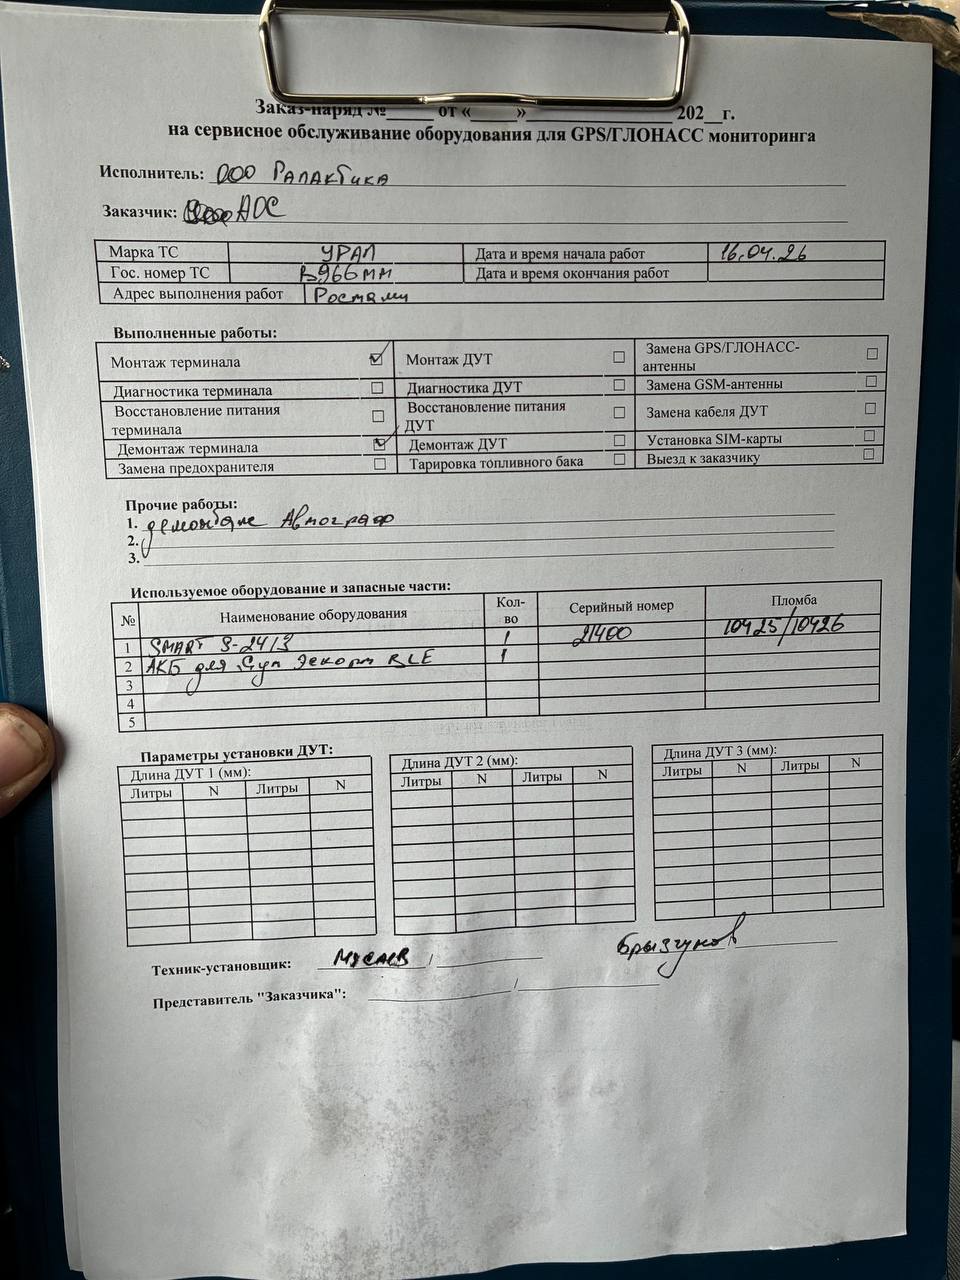 Заказ-наряд №_____ от «____»________________ 202__г.
на сервисное обслуживание оборудования для GPS/ГЛОНАСС мониторинга
Исполнитель: ООО Галактика
Заказчик: АОС
Марка ТС УРАЛ Дата и время начала работ 16.04.26
Гос. номер ТС В966мм Дата и время окончания работ
Адрес выполнения работ
Выполненные работы:
Монтаж терминала ☑ Монтаж ДУТ ☐ Замена GPS/ГЛОНАСС-антенны ☐
Диагностика терминала ☐ Диагностика ДУТ ☐ Замена GSM-антенны ☐
Восстановление питания терминала ☐ Восстановление питания ДУТ ☐ Замена кабеля ДУТ ☐
Демонтаж терминала ☑ Демонтаж ДУТ ☐ Установка SIM-карты ☐
Замена предохранителя ☐ Тарировка топливного бака ☐ Выезд к заказчику ☐
Прочие работы:
1. демонтаж Автограф
2.
3.
Используемое оборудование и запасные части:
№ Наименование оборудования Кол-во Серийный номер Пломба
1 SMART S-2413 1 21400 10425/10426
2 АКБ для Дут Эскорт BLE 1
3
4
5
Параметры установки ДУТ:
Длина ДУТ 1 (мм): Длина ДУТ 2 (мм): Длина ДУТ 3 (мм):
Литры N Литры N Литры N Литры N Литры N Литры N
Техник-установщик: Мусаев / Брызгунов
Представитель "Заказчика": /